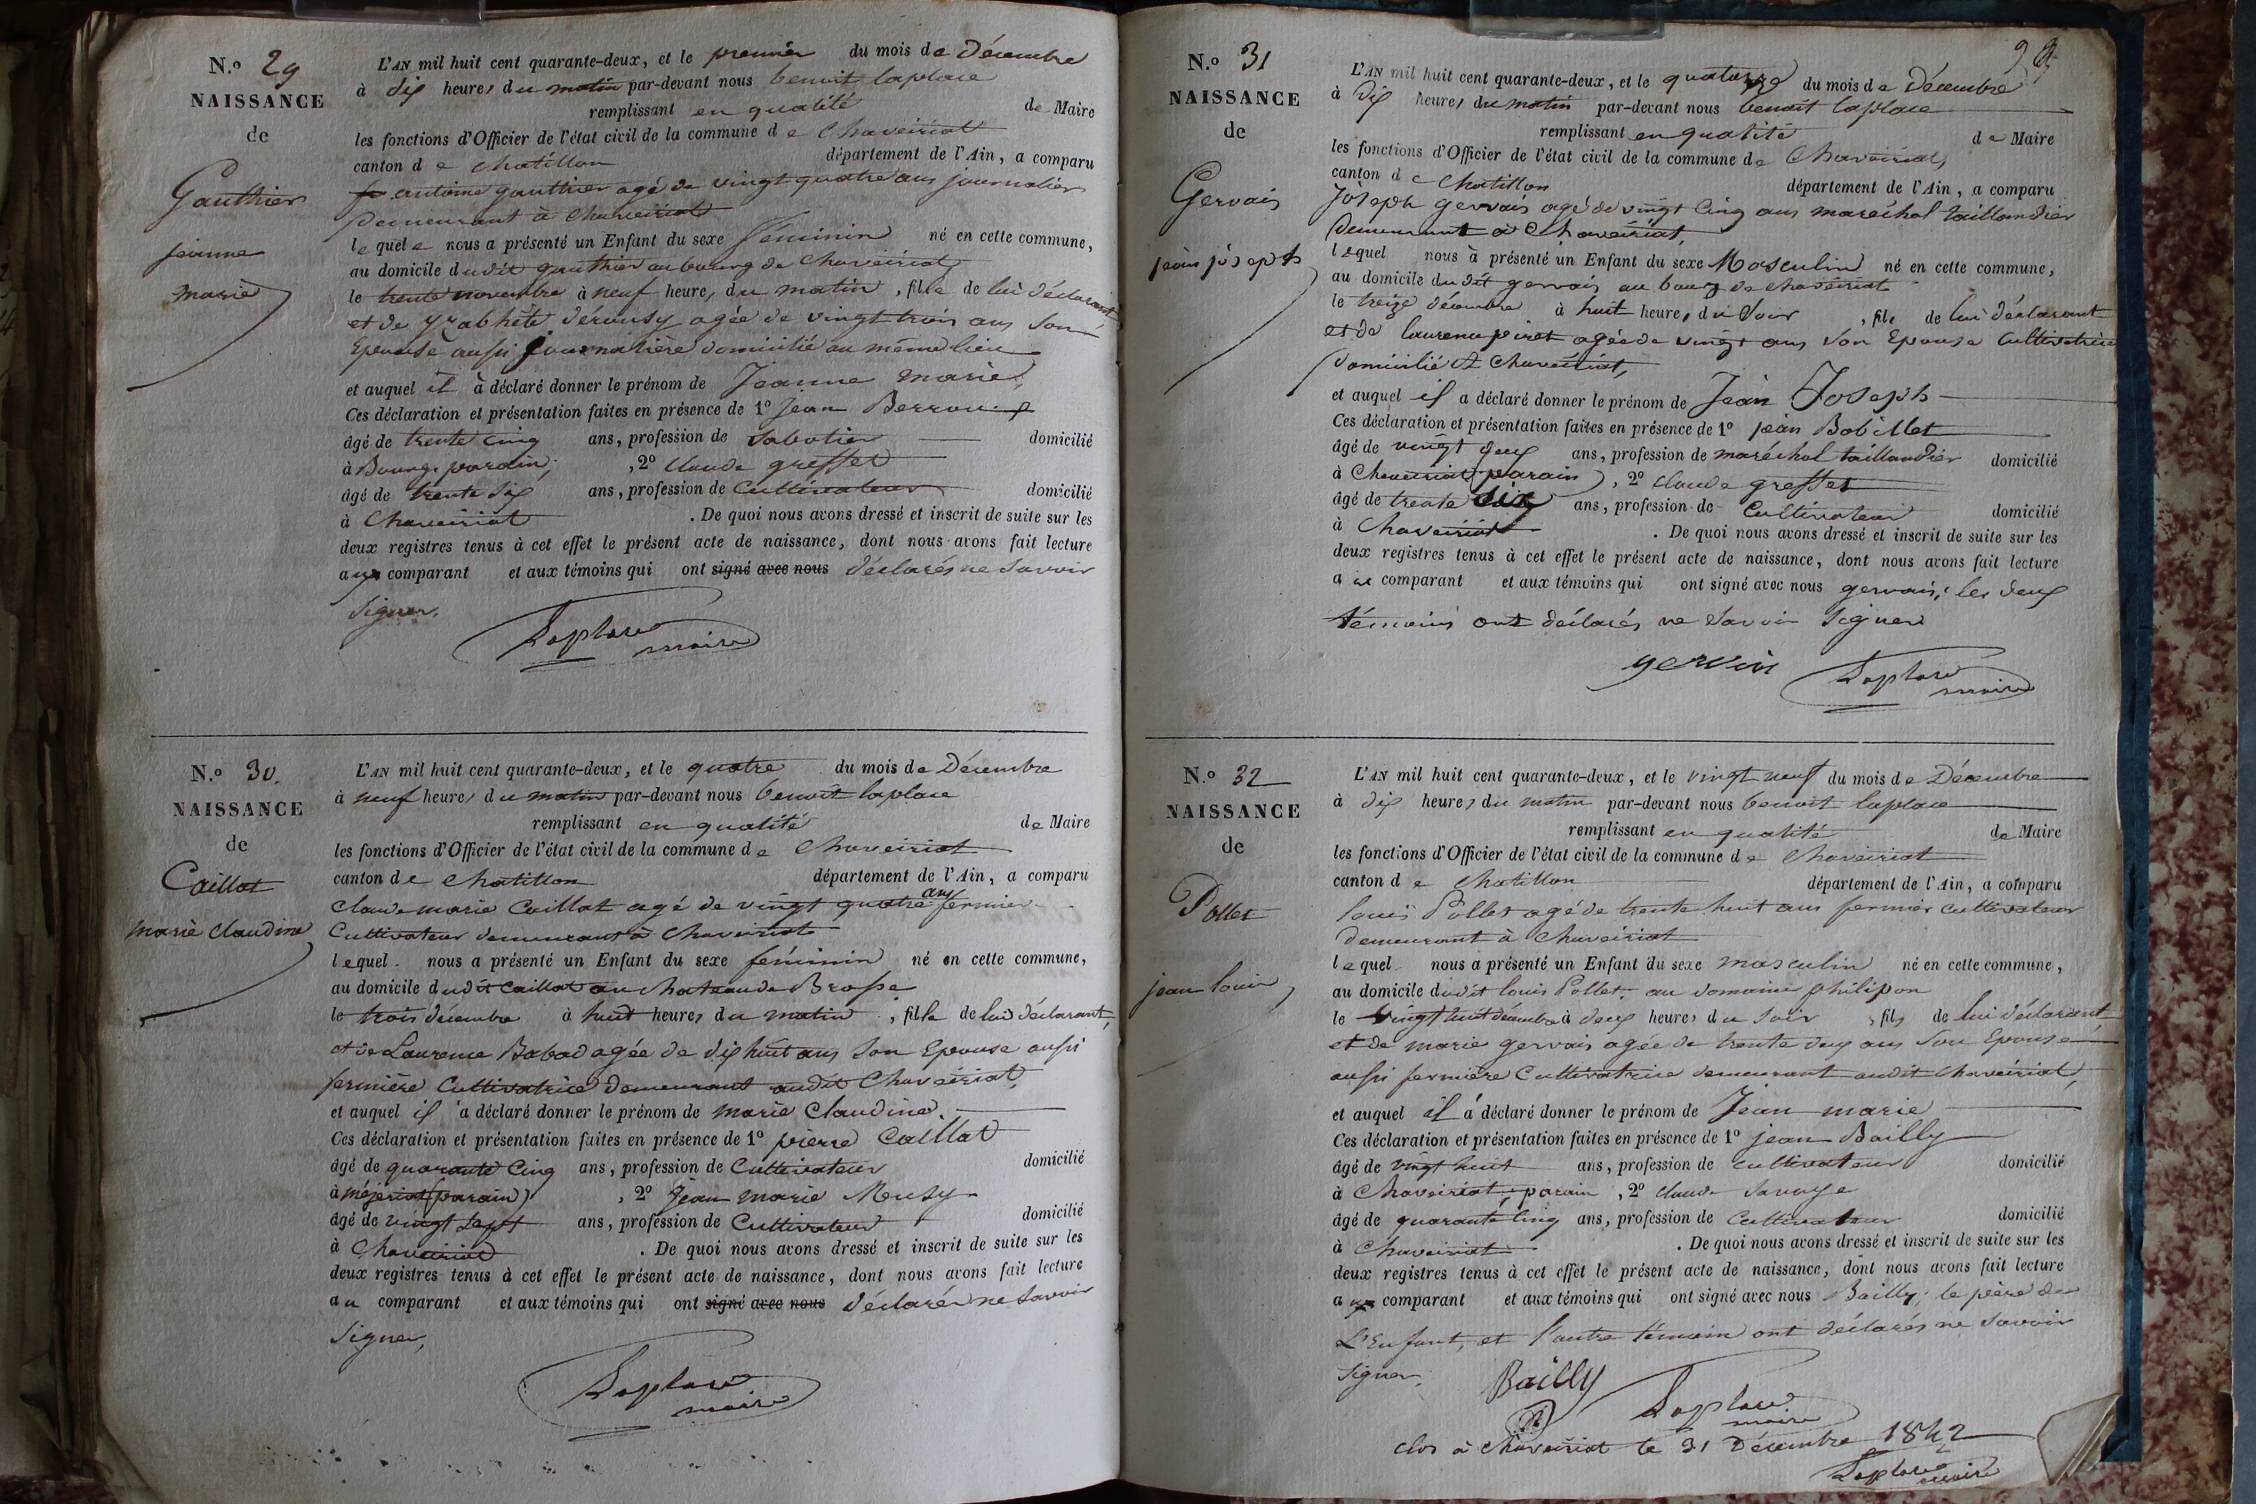 N.º 29
NAISSANCE
de
Gauthier
jeanne
marie
L'AN mil huit cent quarante-deux, et le premier du mois de Décembre
à dix heures du matin par-devant nous benoit laplace
remplissant en qualité de Maire
les fonctions d'Officier de l'état civil de la commune de Chaveiriat
canton de chatillon département de l'Ain, a comparu
antoine gauthier agé de vingt quatre ans journalier
Demeurant à Chaveiriat
lequel nous a présenté un Enfant du sexe féminin né en cette commune,
au domicile dudit gauthier au bourg de Chaveiriat
le trente novembre à neuf heures du matin, fille de lui déclarant
et de agée de vingt trois ans son
Epouse aussi journalière domicilié au même lieu
et auquel il à déclaré donner le prénom de Jeanne marie,
Ces déclaration et présentation faites en présence de 1º jean
âgé de trente cinq ans, profession de Sabotier domicilié
à Bourg, parain, , 2º claude greffet
âgé de trente six ans, profession de Cultivateur domicilié
à Chaveiriat . De quoi nous avons dressé et inscrit de suite sur les
deux registres tenus à cet effet le présent acte de naissance, dont nous avons fait lecture
aux comparant et aux témoins qui ont signé avec nous déclarés ne savoir
Signer,
Laplace
maire
N.º 30.
NAISSANCE
de
Caillat
marie claudine
L'AN mil huit cent quarante-deux, et le quatre du mois de Décembre
à neuf heures du matin par-devant nous benoit laplace
remplissant en qualité de Maire
les fonctions d'Officier de l'état civil de la commune de Chaveiriat
canton de chatillon département de l'Ain, a comparu
claude marie Caillat agé de vingt quatre ans fermier
Cultivateur demeurant à Chaveiriat
lequel nous a présenté un Enfant du sexe féminin né en cette commune,
au domicile dudit Caillat au chateau de Brosse
le trois décembre à huit heures du matin, fille de lui déclarant,
et de Laurence Babad agée de dix huit ans son Epouse aussi
fermière Cultivatrice demeurant audit Chaveiriat,
et auquel il a déclaré donner le prénom de marie Claudine.
Ces déclaration et présentation faites en présence de 1º pierre Caillat
âgé de quarante cinq ans, profession de Cultivateur domicilié
à mézeriat (parain) , 2º Jean marie
âgé de vingt sept ans, profession de Cultivateur domicilié
à Chaveiriat . De quoi nous avons dressé et inscrit de suite sur les
deux registres tenus à cet effet le présent acte de naissance, dont nous avons fait lecture
au comparant et aux témoins qui ont signé avec nous déclarés ne savoir
Signer,
Laplace
maire
N.º 31
NAISSANCE
de
Gervais
jean joseph
L'AN mil huit cent quarante-deux, et le quatorze du mois de Décembre
à dix heures du matin par-devant nous benoit laplace
remplissant en qualité de Maire
les fonctions d'Officier de l'état civil de la commune de Chaveiriat,
canton de Chatillon département de l'Ain, a comparu
joseph gervais agé de vingt cinq ans maréchal taillandier
Demeurant à Chaveiriat,
lequel nous à présenté un Enfant du sexe Masculin né en cette commune,
au domicile dudit gervais au bourg de chaveiriat
le treize décembre à huit heures du soir, fils de lui déclarant
et de laurence piret agée de vingt ans son Epouse Cultivatrice
domicilié à Chaveiriat,
et auquel il a déclaré donner le prénom de Jean Joseph
Ces déclaration et présentation faites en présence de 1º jean Bobillet
âgé de vingt deux ans, profession de maréchal taillandier domicilié
à Chaveiriat (parain) , 2º claude greffet
âgé de trente six ans, profession de Cultivateur domicilié
à Chaveiriat . De quoi nous avons dressé et inscrit de suite sur les
deux registres tenus à cet effet le présent acte de naissance, dont nous avons fait lecture
au comparant et aux témoins qui ont signé avec nous gervais; les deux
témoins ont déclarés ne savoir signer
gervais
Laplace
maire
N.º 32
NAISSANCE
de
Pollet
jean louis
L'AN mil huit cent quarante-deux, et le vingt neuf du mois de Décembre
à dix heures du matin par-devant nous benoit laplace
remplissant en qualité de Maire
les fonctions d'Officier de l'état civil de la commune de Chaveiriat
canton de Chatillon département de l'Ain, a comparu
louis Pollet agé de trente huit ans fermier cultivateur
demeurant à Chaveiriat
lequel nous a présenté un Enfant du sexe masculin né en cette commune,
au domicile dudit louis Pollet, au domaine philipon
le vingt huit décembre à deux heures du soir, fils de lui déclarant
et de marie gervais agée de trente deux ans son Epouse
aussi fermière Cultivatrice demeurant audit Chaveiriat,
et auquel il a déclaré donner le prénom de Jean marie
Ces déclaration et présentation faites en présence de 1º jean Bailly
âgé de vingt huit ans, profession de cultivateur domicilié
à Chaveiriat, parain , 2º claude Savoye
âgé de quarante cinq ans, profession de Cultivateur domicilié
à Chaveiriat . De quoi nous avons dressé et inscrit de suite sur les
deux registres tenus à cet effet le présent acte de naissance, dont nous avons fait lecture
aux comparant et aux témoins qui ont signé avec nous Bailly; le père de
L'Enfant, et l'autre témoin ont déclarés ne savoir
signer.
Bailly
Laplace
maire
clos à Chaveiriat le 31 Décembre 1842
Laplace
maire